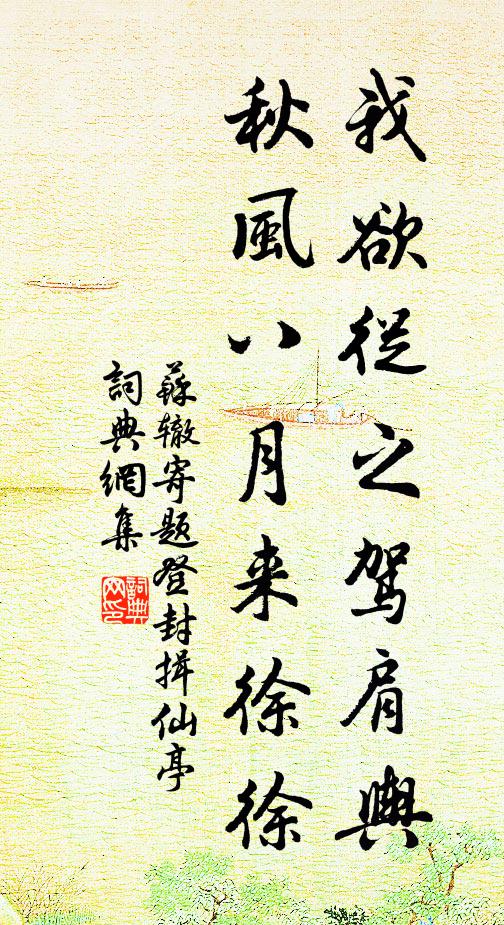 我欲從之駕肩輿
秋風八月来徐徐
蘇辙寄题登封揖仙亭
詞典網集
詞典網印